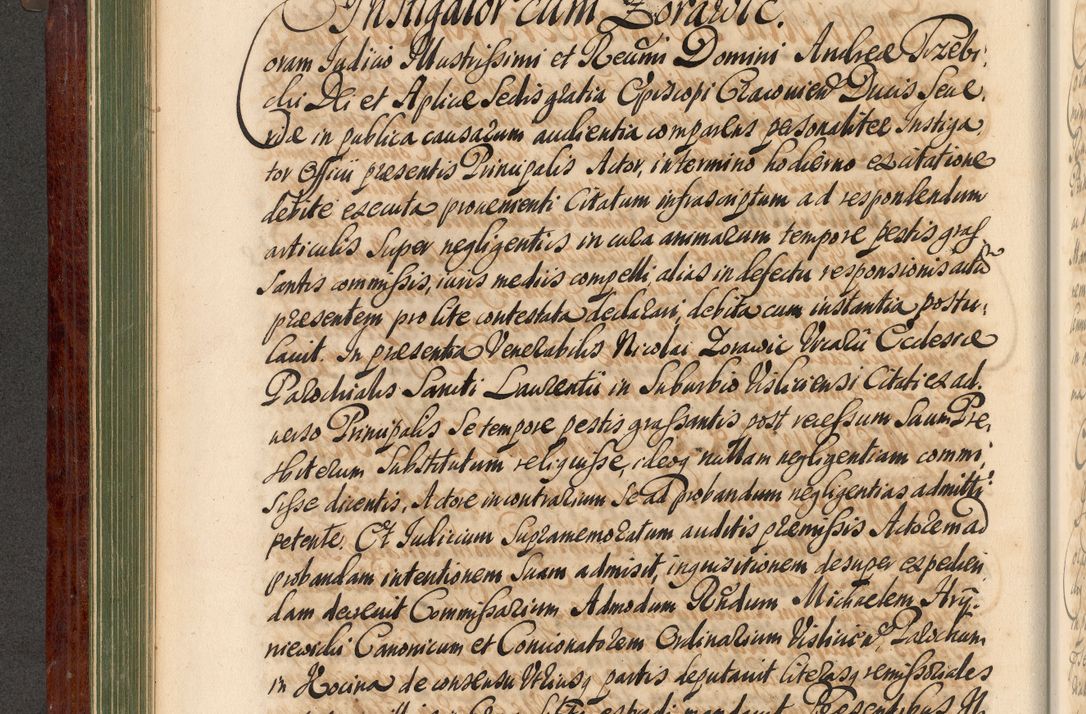 Instigator cum Zorawic.
Coram Judicio Illustrissimi et Reūmi Domini Andreæ Trzebi:
cki Dei et Aplicæ Sedis gratia Episcopi Cracovien Ducis Seve:
riæ in publica causarum audientia comparens personaliter Instiga
tor Officii præsentis Principalis Actor, in termino hodierno ex citatione
debite executa provenienti Citatum infrascriptum ad respondendum
articulis super negligentiis in cura animarum tempore pestis graſ
santis commissis, iuris mediis compelli, alias in defectu responsionis
præsentem pro lite contestata declarari, debita cum instantia postu:
lavit. In præsentia Venerabilis Nicolai Zorawic Vicarii Ecclesiæ
Parochialis Sancti Laurentii in Suburbio Visliciensi Citati ex ad:
verso Principalis se tempore pestis grassantis post recessum suum Præ:
sbiterum Substitutum reliquisse, ideoq nullam negligentiam commi:
sisse dicentis, Actore in contrarium se ad probandum negligentias admitti
petente. Et Judicium Supramemoratum auditis præmissis Actorem ad
probandam intentionem suam admisit, inquisitionem desuper expedien:
dam decrevit Commissarium Admodum Rñdum Michaelem Hry:
niewicki Canonicum et Concionatorem Ordinarium Vislicien Parochum
in Kocina de consensu Utriusq partis deputavit literasq remissoriales